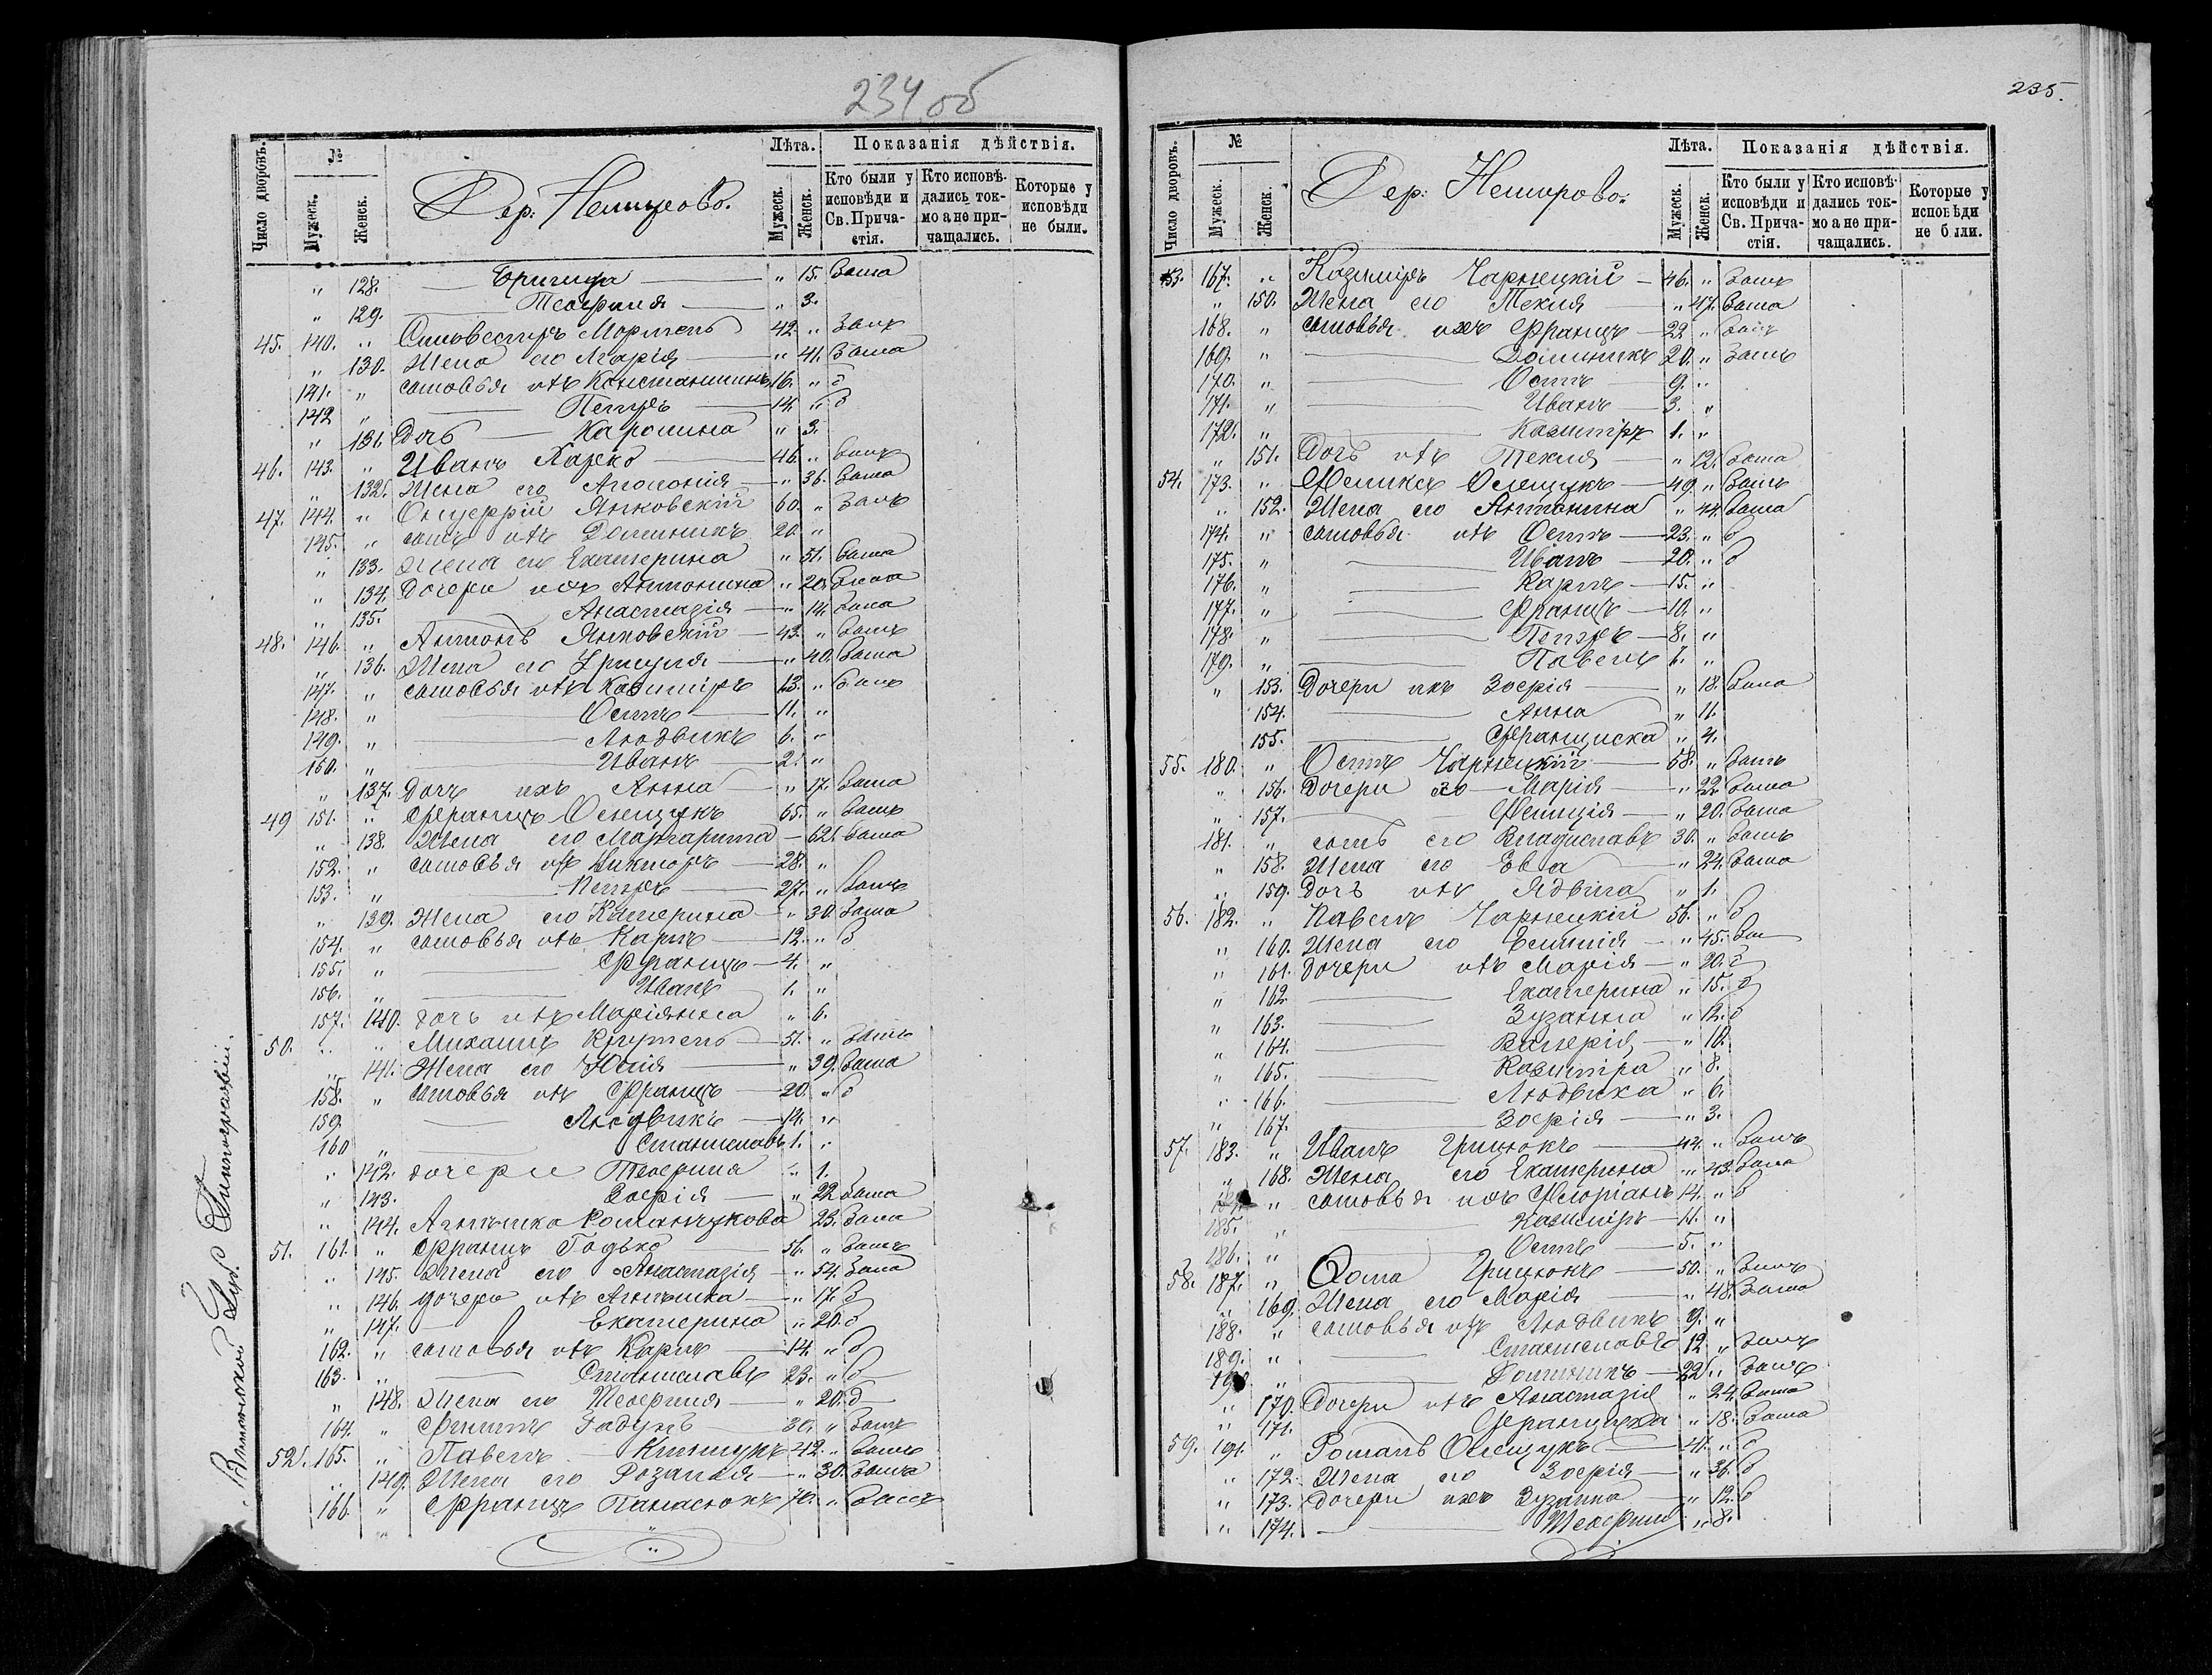 234 об
Число дворовъ.
№
Мужеск.
Женск.
Дер: Немирово.
Лѣта.
Мужеск.
Женск.
Показанія дѣйствія.
Кто были у исповѣди и Св. Причастія.
Кто исповѣдались токмо а не причащались.
Которые у исповѣди не были.
„ 128. Бригида „ 15. была
„ 129. Теофиля „ 3.
45. 140. „ Сильвестръ 42. „ былъ
„ 130. Жена его Марія „ 41. была
141. „ сыновья ихъ Константинъ 16. „ б
142 „ Петръ 14. „ б
„ 131. Дочь Каролина „ 3.
46. 143. „ Иванъ 46. „ былъ
„ 132. Жена его Аполонія „ 36. была
47. 144. „ Онуфрій Янковскій 60. „ былъ
145. „ сынъ ихъ Доминикъ 20. „
„ 133. жена его Екатерина „ 51. была
„ 134. Дочери ихъ Антонина „ 20. была
„ 135. Анастазія „ 14. была
48. 146. „ Антонъ Янковскій 43. „ былъ
„ 136. Жена его Уршуля „ 40. была
147. „ сыновья ихъ Казиміръ 13. „ былъ
148. „ Осипъ 11. „
149. „ Людвикъ 6. „
150. „ Иванъ 2. „
„ 137. Дочь ихъ Анна „ 17. была
49 151. „ Францъ Олещукъ 65. „ былъ
„ 138. Жена его Маргарита 62. была
152. „ сыновья ихъ Викторъ 28. „
153. „ Петръ 27. „ былъ
„ 139. Жена его Катерина „ 30 была
154. „ сыновья ихъ Карлъ 12. „ б
155. „ Францъ 4. „
156. „ Иванъ 1. „
157. 140. дочь ихъ Маріянна „ 6.
50. „ „ Михаилъ 51. „ былъ
„ 141. Жена его Юлія „ 39. была
158. „ сыновья ихъ Францъ 20. „ б
159. Людвикъ 14. „
160 „ Станиславъ 1. „
„ 142. дочери Теофиля „ 1.
„ 143. Зофія „ 22 была
„ 144. Агнѣшка Романчукова 23. была
51. 161. „ Францъ Годько 56. „ былъ
„ 145. Жена его Анастазія „ 54. была
„ 146. дочери ихъ Агнѣшка „ 17. б
„ 147. Екатерина „ 20. б
162. „ сыновья ихъ Карлъ 14. „ б
163. „ Станиславъ 23. „ б
„ 148. Жена его Теофиля „ 20. б
164. „ Филипъ 30. „ былъ
52. 165. „ Павелъ 42. „ былъ
„ 149. Жена его Розалія „ 30. была
166. „ Францъ Панасюкъ 70. „ былъ
Виленской Губ. Типографіи.
235.
Число дворовъ.
№
Мужеск.
Женск.
Дер: Немирово:
Лѣта.
Мужеск.
Женск.
Показанія дѣйствія.
Кто были у исповѣди и Св. Причастія.
Кто исповѣдались токмо а не причащались.
Которые у исповѣди не были.
53. 167. „ Казиміръ Чарнецкій 46. „ былъ
„ 150. Жена его Текля „ 47. была
168. „ сыновья ихъ Францъ 22 „ былъ
169. „ Доминикъ 20. „ былъ
170. „ Осипъ 9. „
171. „ Иванъ 3. „
172. „ Казиміръ 1. „
„ 151. Дочь ихъ Текля „ 12. была
54. 173. „ Феликсъ Олещукъ 49. „ былъ
„ 152. Жена его Антонина „ 44. была
174. „ сыновья ихъ Осипъ 23. „ б
175. „ Иванъ 20. „ б
176. „ Карлъ 15. „
177. „ Францъ 10. „
178. „ Петръ 8. „
179. „ Павелъ „
„ 153. Дочери ихъ Зофія „ 18. была
154. Анна „ 11.
155. Францишка „ 4.
55. 180. „ Осипъ Чарнецкій 58. „ былъ
„ 156. Дочери его Марія „ 22. была
„ 157. Фелиція „ 20. была
181. „ сынъ его Владиславъ 30. „ былъ
„ 158. Жена его Ева „ 24. была
„ 159. Дочь ихъ Ядвига „ 1.
56. 182. „ Павелъ Чарнецкій 56. „ б
„ 160. Жена его „ 45. был
„ 161. дочери ихъ Марія „ 20. б
„ 162 Екатерина „ 15. б
„ 163. Зузанна „ 12. б
„ 164. Валерія „ 10.
„ 165. Казиміра „ 8.
„ 166. Людвика „ 6.
„ 167. Зофія „ 3.
57. 183. „ Иванъ Грицюкъ 44. „ былъ
„ 168. Жена его Екатерина „ 43. была
„ сыновья ихъ Флоріанъ 14. „ б
185. „ Казиміръ 11. „
186. „ Осипъ 5. „
58. 187. „ Ѳома Грицюкъ 50. „ былъ
„ 169. Жена его Марія „ 48. была
188. „ сыновья ихъ Людвикъ 9. „
189. „ Станиславъ 12 „ былъ
190 „ Доминикъ 22. „ былъ
„ 170. Дочери ихъ Анастазія „ 24. была
„ 171. Францишка „ 18. была
59. 191. „ Романъ Олещукъ 41. „ б
„ 172. Жена его Зофія „ 36. б
„ 173. Дочери ихъ Зузанна „ 12. б
„ 174. Теофиля „ 8.